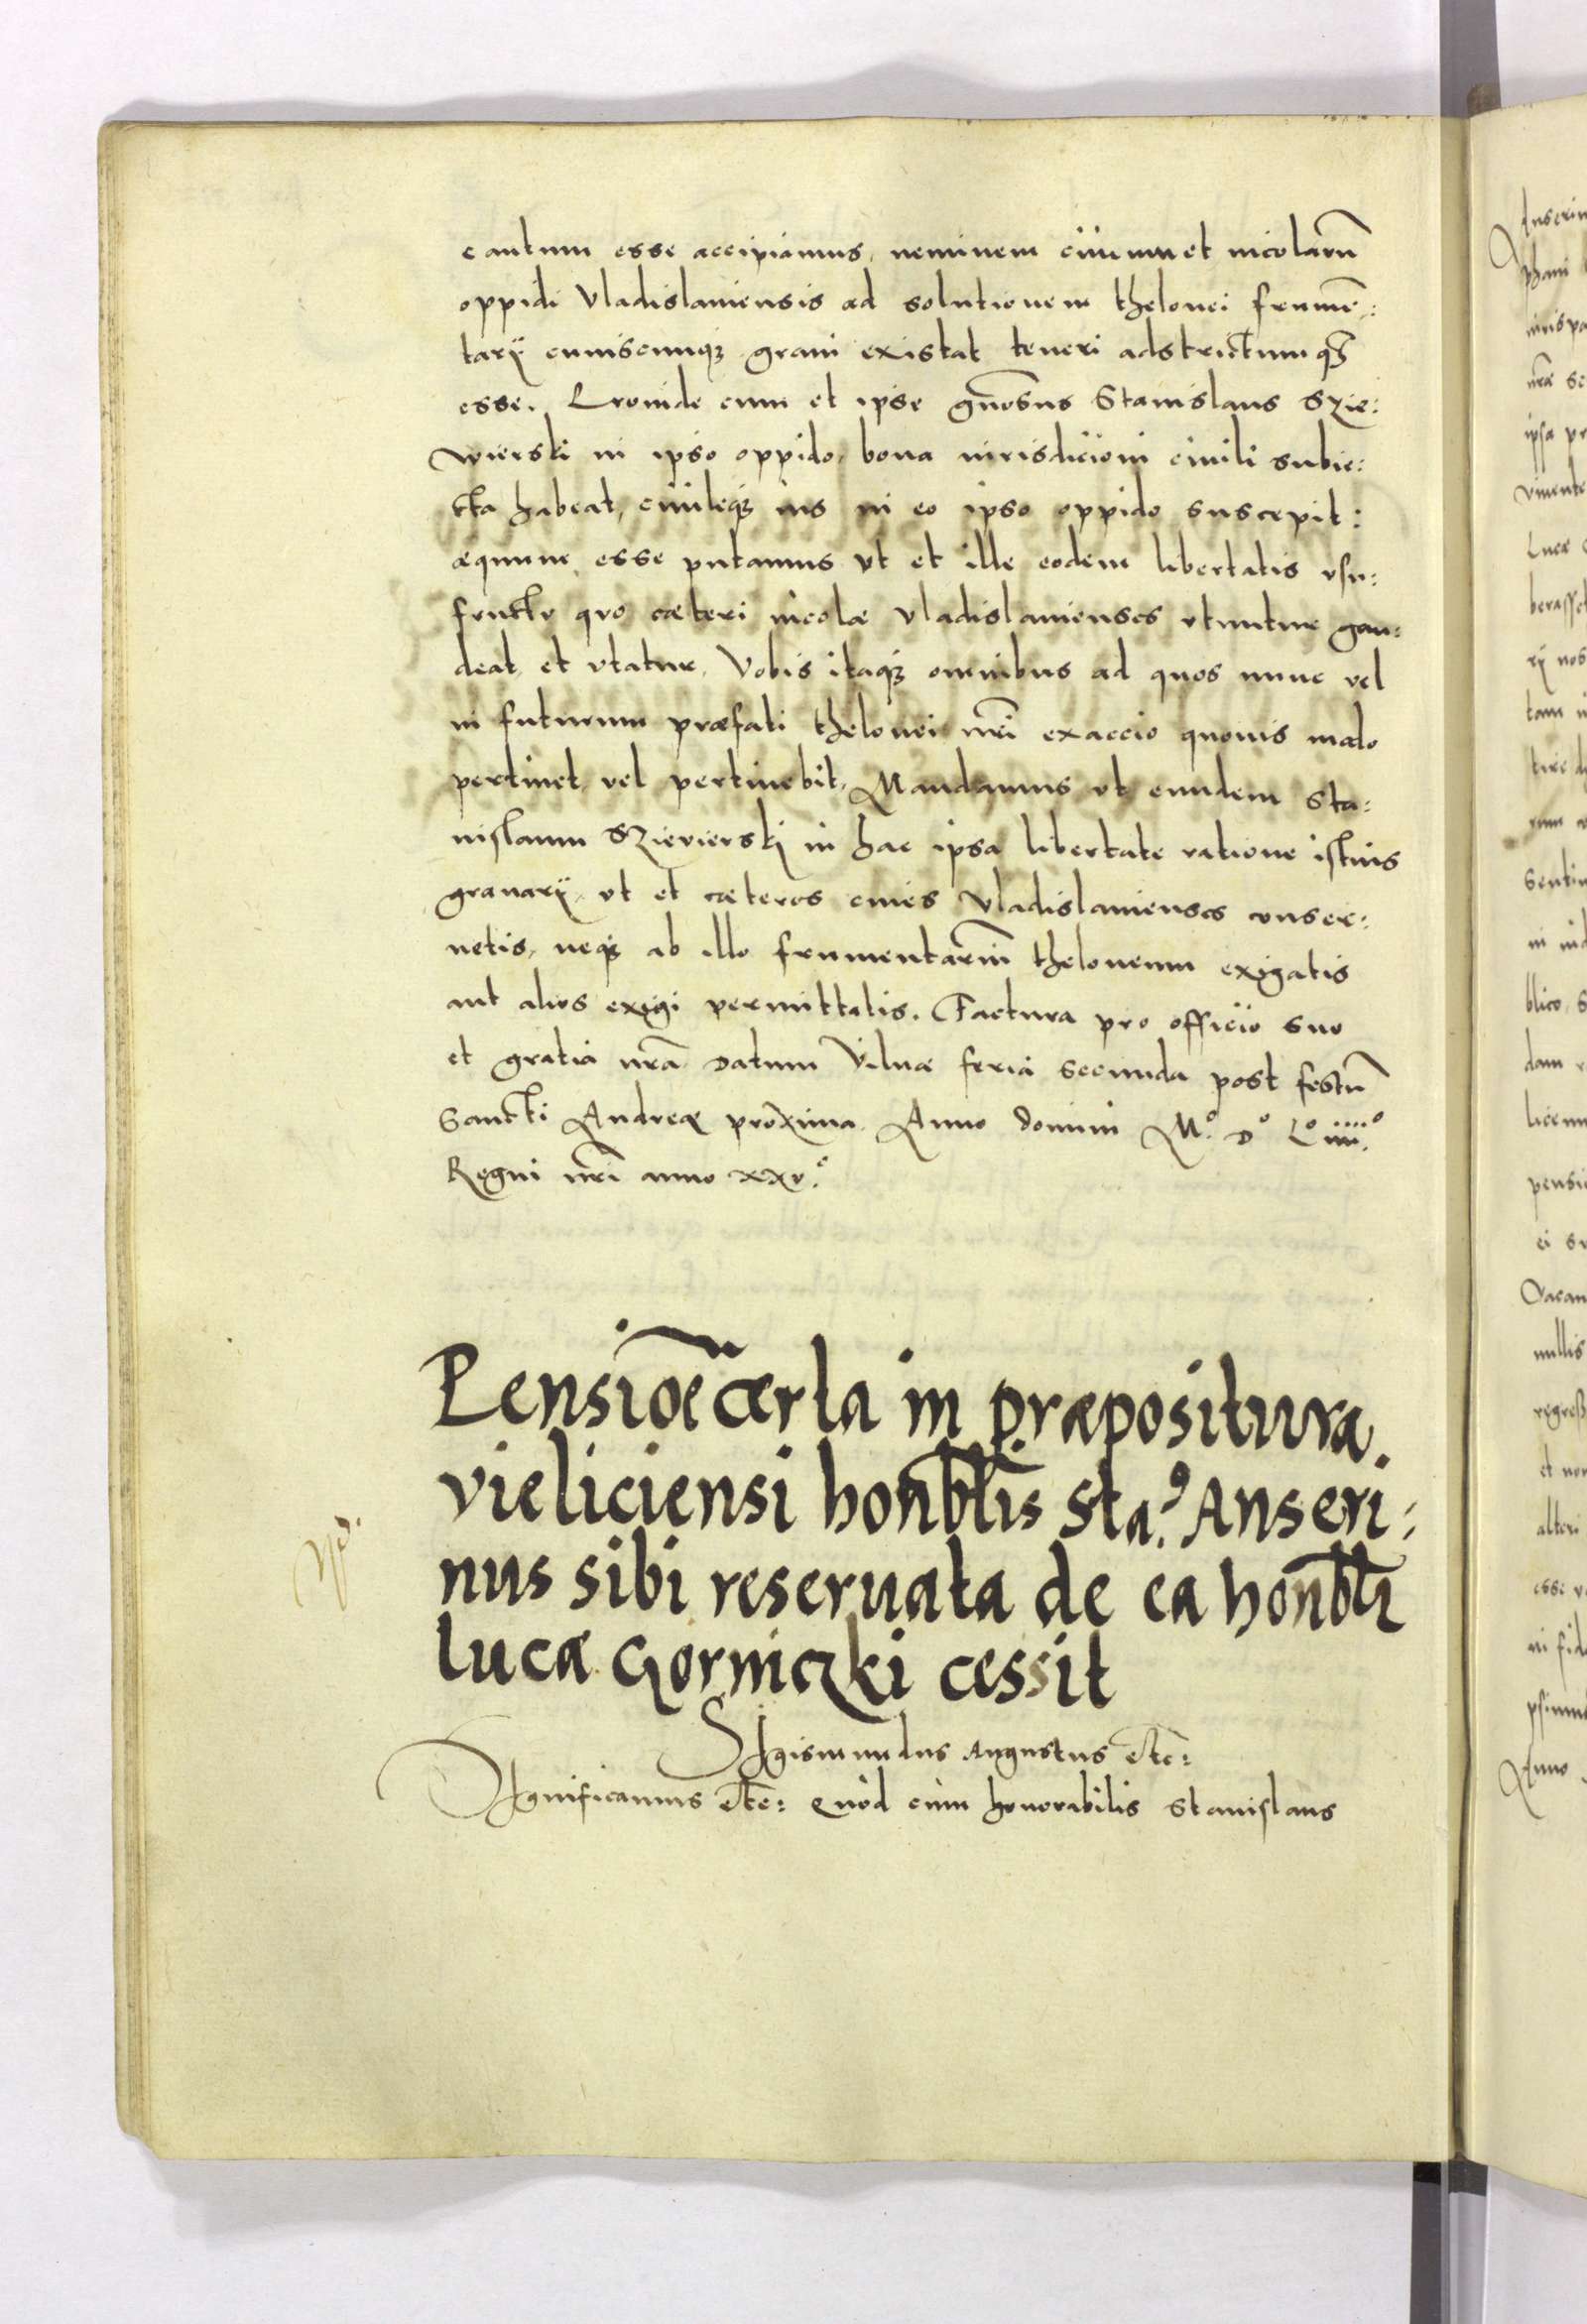 cautum esse accipiamus, neminem ciuium et incolarũ
oppidi Vladislauiensis ad solutionem thelonei frumẽ:
tarÿ cuiuscunqꝫ grani existat teneri adstrictumqꝫ
esse. Proinde cum et ipse gñosus Stanislaus Szie:
wierski in ipso oppido, bona iurisdicioni ciuili subie:
cta habeat, ciuileqꝫ ius in eo ipso oppido suscepit:
æquum esse putamus vt et ille eodem libertatis vsu:
fructv qvo cæteri incolæ Vladislauienses vtuntur gau:
deat et vtatur, Vobis itaqꝫ omnibus ad quos nunc vel
in futurum præfati thelonei nr̃i exaccio quouis modo
pertinet vel pertinebit, Mandamus vt eundem Sta:
nislaum Szievierskj in hac ipsa libertate ratione istius
granarÿ, vt et cæteros ciues Vladislauienses conser:
uetis, neqꝫ ab illo frumentariũ theloneum exigatis
aut alios exigi permittatis. Factura pro officio suo
et gratia nr̃a Datum Vilnæ feria secunda post festũ
Sancti Andreæ proxima. Anno domini M.º Dº Lº iiii.º
Regni nr̃i anno xxv.º
Pensiõe cærta in præpositura
vieliciensi honb̃lis Sta.⁹ Anseri:
nus sibi reseruata de ea honb̃li
lucæ Gorniczki cessit
Sigismundus Augustus etc̃:
Significamus etc̃: Quod cum honorabilis Stanislaus